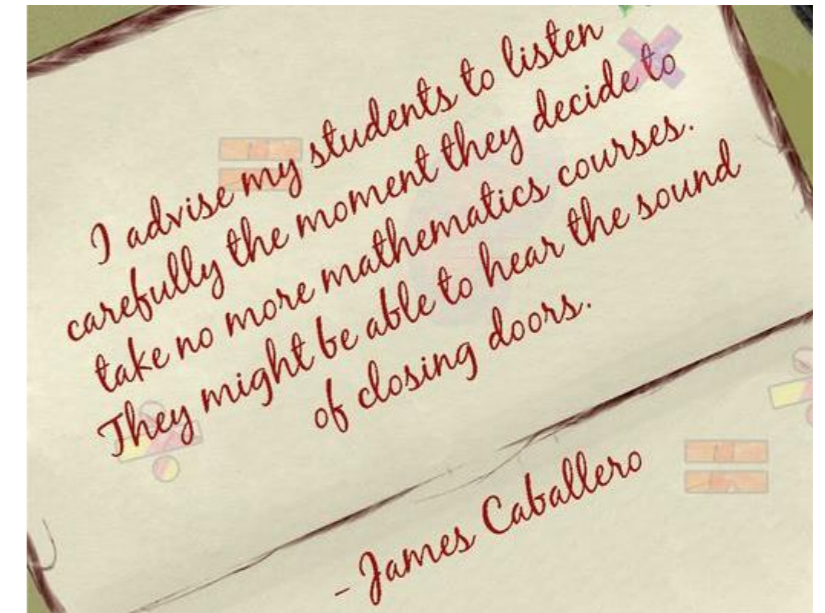 I advise my students to listen
carefully the moment they decide to
take no more mathematics courses.
They might be able to hear the sound
of closing doors.
- James Caballero